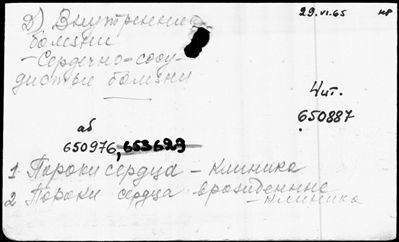 29.VI.65 нр
Д) Внутренние
болезни
- Сердечно-сосу-
дистые болезни
4 шт.
650887
аб
650976, 653629
1 Пороки сердца - клиника
2 Пороки сердца врожденные
- клиника